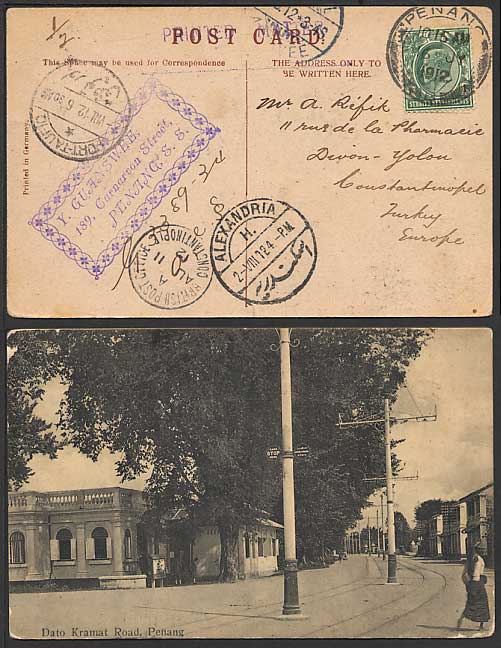 1/2
PRINTED MATTER
POST CARD
This Space may be used for Correspondence
THE ADDRESS ONLY TO
BE WRITTEN HERE.
PENANG
1912
STRAITS SETTLEMENTS
PORT-TAUFIQ
Printed in Germany.
Y. GUAN SWEE,
189, Carnarvon Street,
PENANG. S. S.
Mr A. Refik
11 rue de la Pharmacie
Divon-Yolou
Constantinopel
Turkey
Europe
ALEXANDRIA
H.
2-VIII 12 4-PM.
BRITISH POST OFFICE
CONSTANTINOPLE
Dato Kramat Road, Penang